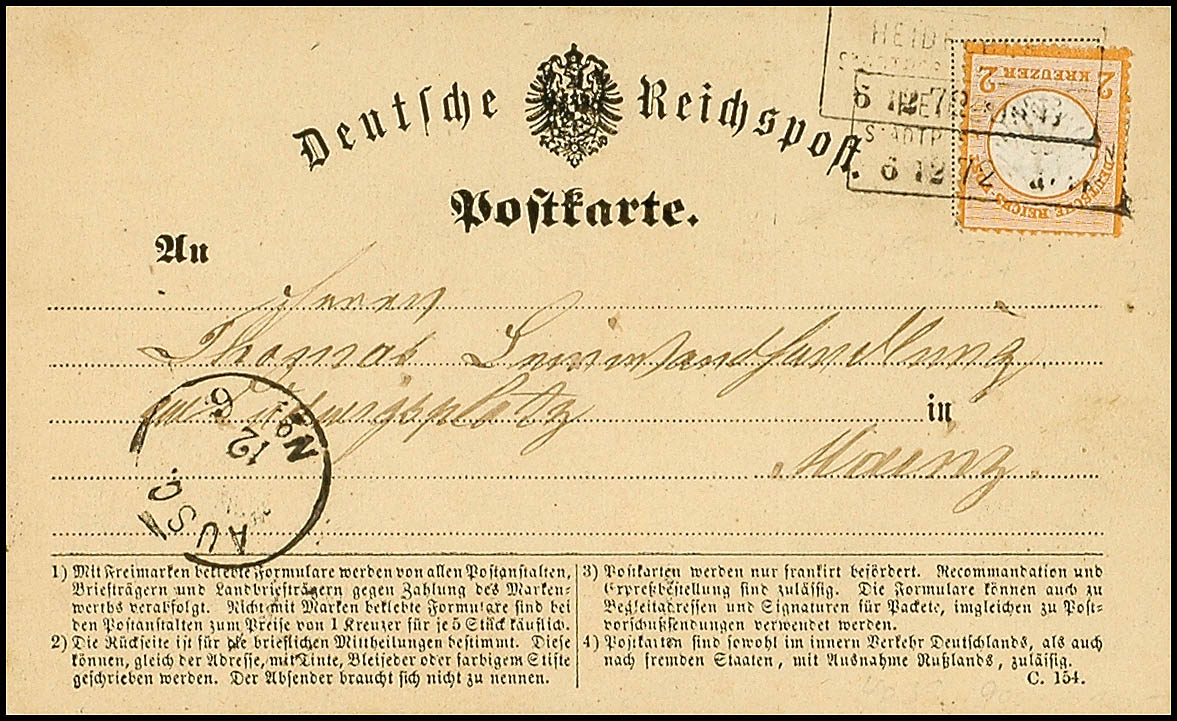 Deutsche Reichspost.
Postkarte.
HEIDE
STADTPOS
6 12 7
STADTP
6 12 7
2 KREUZER 2
DEUTSCHE REICHS-POST
An
Herrn
Thomas Leinwandhandlung
am Ludwigsplatz in
Mainz.
No 1
12
6
AUSG.
1) Mit Freimarken beklebte Formulare werden von allen Postanstalten,
Briefträgern und Landbriefträgern gegen Zahlung des Marken-
werths verabfolgt. Nicht mit Marken beklebte Formulare sind bei
den Postanstalten zum Preise von 1 Kreuzer für je 5 Stück käuflich.
2) Die Rückseite ist für die brieflichen Mittheilungen bestimmt. Diese
können, gleich der Adresse, mit Tinte, Bleifeder oder farbigem Stifte
geschrieben werden. Der Absender braucht sich nicht zu nennen.
3) Postkarten werden nur frankirt befördert. Recommandation und
Expreßbestellung sind zulässig. Die Formulare können auch zu
Begleitadressen und Signaturen für Packete, imgleichen zu Post-
vorschußsendungen verwendet werden.
4) Postkarten sind sowohl im innern Verkehr Deutschlands, als auch
nach fremden Staaten, mit Ausnahme Rußlands, zulässig.
C. 154.